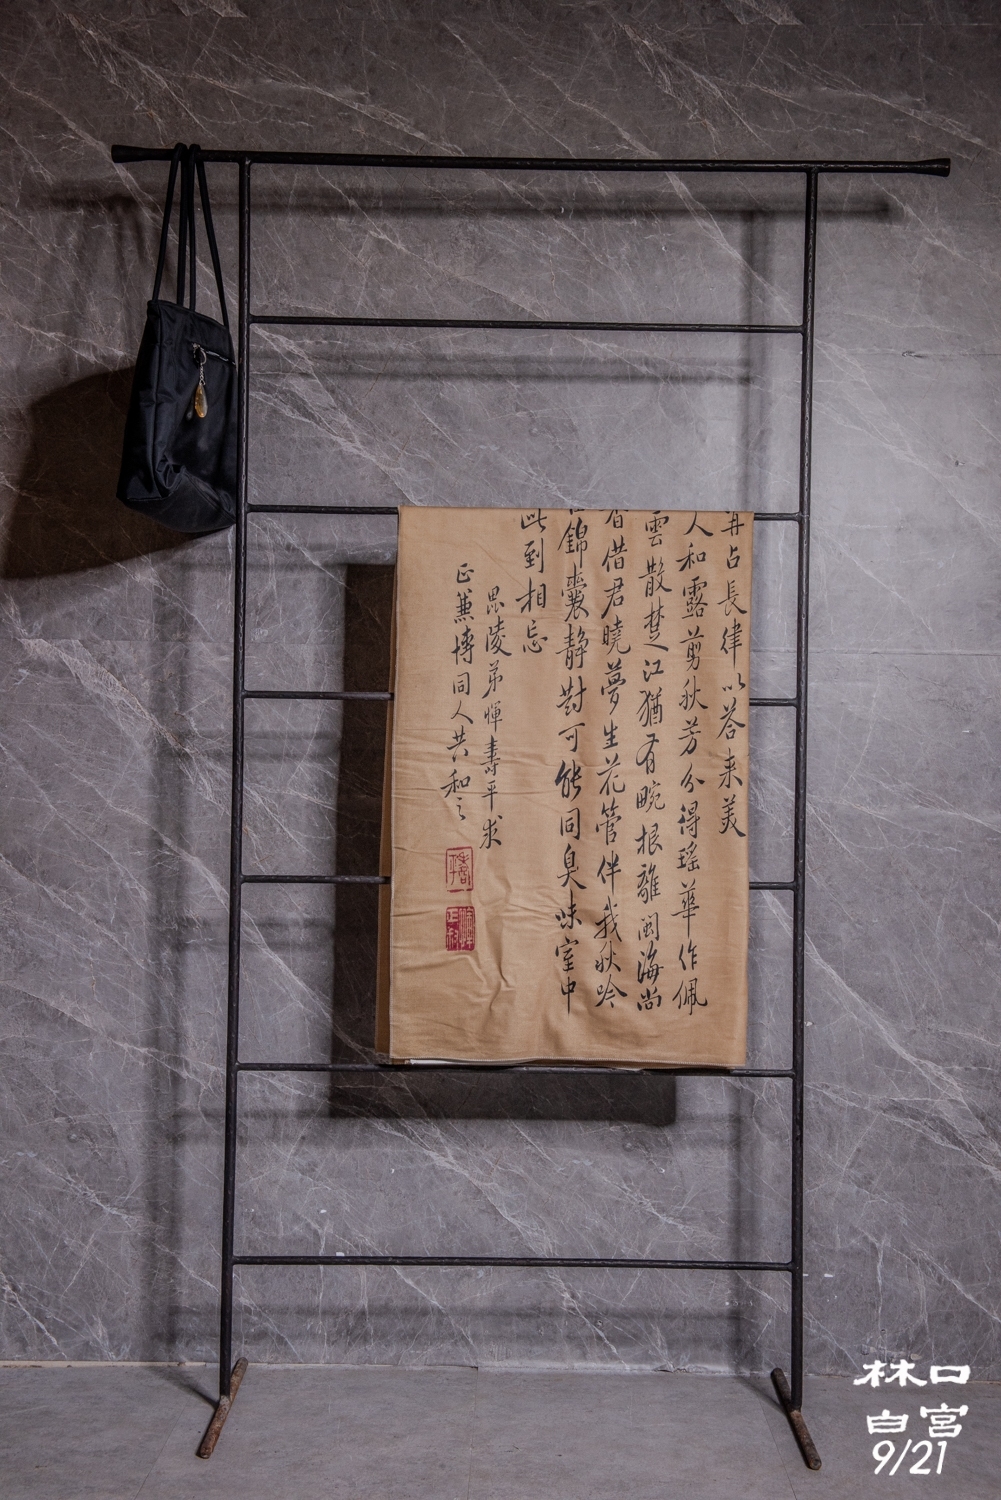 再占長律以答来美
人和露剪秋芳分得瑤華作佩
雲散楚江猶有畹根離閩海尚
借君曉夢生花管伴我秋吟
錦囊静對可能同臭味室中
此到相忘
毘陵弟暉壽平求
正蕙博同人共和之
林口
白宮
9/21